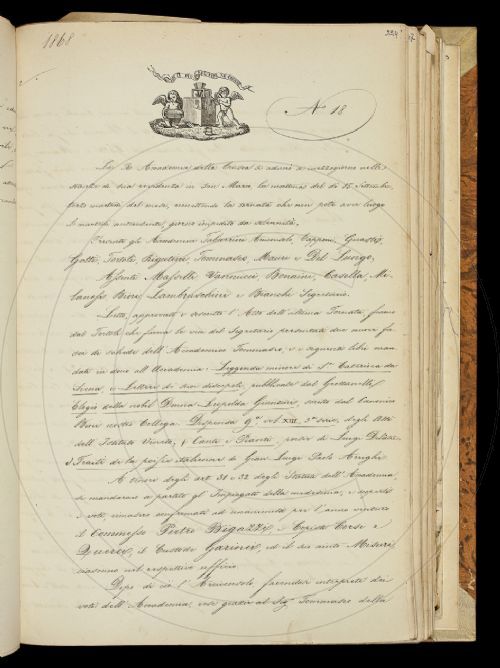 1868
224
N 18
La R. Accademia della Crusca si adunò a mezzogiorno nelle
stanze di sua residenza in San Marco la mattina del dì 15 Settembre
terzo martedì del mese, rimettendo la tornata che non potè aver luogo
il martedì antecedente, giorno impedito da solennità.
Presenti gli Accademici Tabarrini Arciconsolo, Capponi, Guasti,
Gotti, Tortoli, Rigutini, Tommaseo, Mauri e Del Lungo,
Assenti Masselli Vannucci, Bonaini, Casella, Mi-
lanesi Bini, Lambruschini e Bianchi Segretario.
Letto, approvato e the l'Atto dell'ultima Tornata, firmo
dal Tortoli che faceva le veci del Segretario presentate due nuove
di schede dell'Accademico Tommaseo, e i seguenti libri man-
dati in dono all'Accademia: Leggenda minore di S. Caterina da
Siena, e Lettere di suoi discepoli, pubblicate dal Grottanelli,
Elogio della nobil Donna Leopolda scritto dal Canonico
Bini nostro Collega. Dispensa 9.a vol XIII, 3.a serie, degli Atti
dell'Istituto Veneto, Canti e Pianti poesie di Luigi
Traité de la poésie italienne di Gian Luigi Paolo
A tenore degli art. 31 e 32 degli Statuti dell'Accademia,
si mandarono a partito gl'Impiegati della medesima, e raccolti
i voti, rimasero confermati ad unanimità per l'anno venturo
il Commesso Pietro Bigazzi, i Copisti Corsi e
Querci, il Custode Gariner, ed il suo aiuto
ciascuno nel respettivo ufficio.
Dopo di ciò l'Arciconsolo facendosi interprete dei
voti dell'Accademia, rese grazie al Sig. Tommaseo della